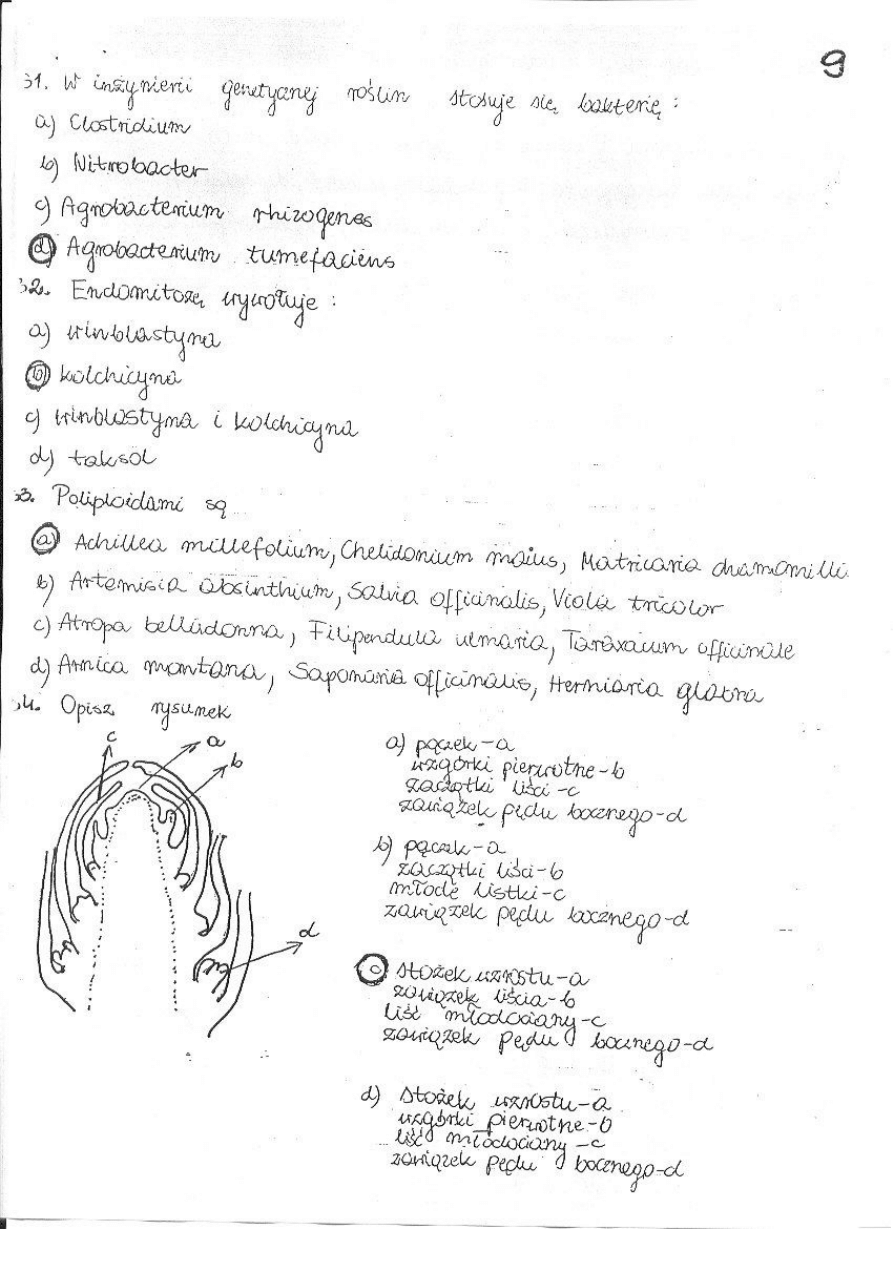 9
31. W inżynierii genetycznej roślin stosuje się bakterię :
a) Clostridium
b) Nitrobacter
c) Agrobacterium rhizogenes
d) Agrobacterium tumefaciens
32. Endomitozę wywołuje :
a) winblastyna
b) kolchicyna
c) winblastyna i kolchicyna
d) taksol
33. Poliploidami są
a) Achillea millefolium, Chelidonium maius, Matricaria chamomilla
b) Artemisia absinthium, Salvia officinalis, Viola tricolor
c) Atropa belladonna, Filipendula ulmaria, Taraxacum officinale
d) Arnica montana, Saponaria officinalis, Herniaria glabra
34. Opisz rysunek
c
a
b
d
a) pączek-a
wzgórki pierwotne-b
zaczątki liści-c
zawiązek pędu bocznego-d
b) pączek-a
zaczątki liści-b
młode listki-c
zawiązek pędu bocznego-d
c) stożek wzrostu-a
zawiązek liścia-b
liść młodociany-c
zawiązek pędu bocznego-d
d) stożek wzrostu-a
wzgórki pierwotne-b
liść młodociany-c
zawiązek pędu bocznego-d